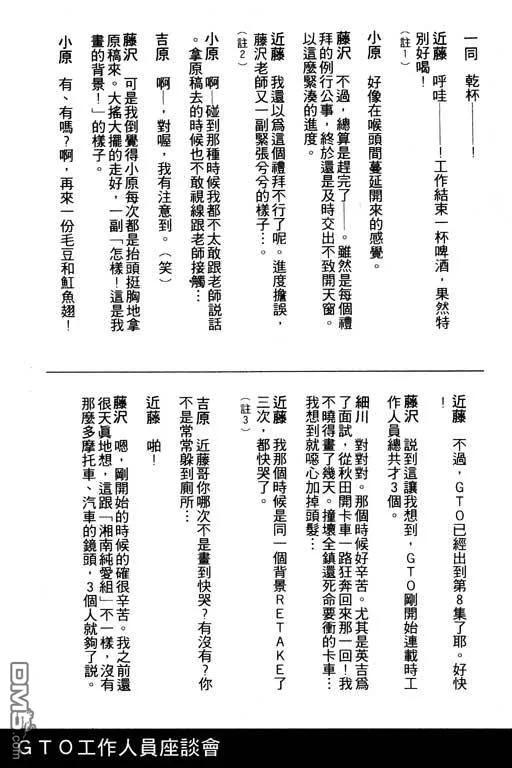 一同　乾杯———！
近藤　呼哇———！工作結束一杯啤酒，果然特
別好喝！
（註1）
小原　好像在喉頭間蔓延開來的感覺。
藤沢　不過，總算是趕完了——。雖然是每個禮
拜的例行公事，終於還是及時交出不致開天窗。
以這麼緊湊的進度。
近藤　我還以為這個禮拜不行了呢。進度擔誤，
藤沢老師又一副緊張兮兮的樣子…。
（註2）
小原　啊—碰到那種時候我都不太敢跟老師說話
。拿原稿去的時候也不敢視線跟老師接觸…
吉原　啊—，對喔，我有注意到。（笑）
藤沢　可是我倒覺得小原每次都是抬頭挺胸地拿
原稿來。大搖大擺的走好，一副「怎樣！這是我
畫的背景！」的樣子。
小原　有、有嗎？啊，再來一份毛豆和魟魚翅！
近藤　不過，GTO已經出到第8集了耶。好快
！
藤沢　說到這讓我想到，GTO剛開始連載時工
作人員總共才3個。
細川　對對對。那個時候好辛苦。尤其是英吉為
了面試，從秋田開卡車一路狂奔回來那一回！我
不曉得畫了幾天。撞壞全鎮還死命要衝的卡車…
我想到就噁心加掉頭髮…
近藤　我那個時候是同一個背景RETAKE了
三次，都快哭了。
（註3）
吉原　近藤哥你哪次不是畫到快哭？有沒有？你
不是常常躲到廁所…
近藤　啪！
藤沢　嗯，剛開始的時候的確很辛苦。我之前還
很天真地想，這跟「湘南純愛組」不一樣，沒有
那麼多摩托車、汽車的鏡頭，3個人就夠了說。
GTO工作人員座談會